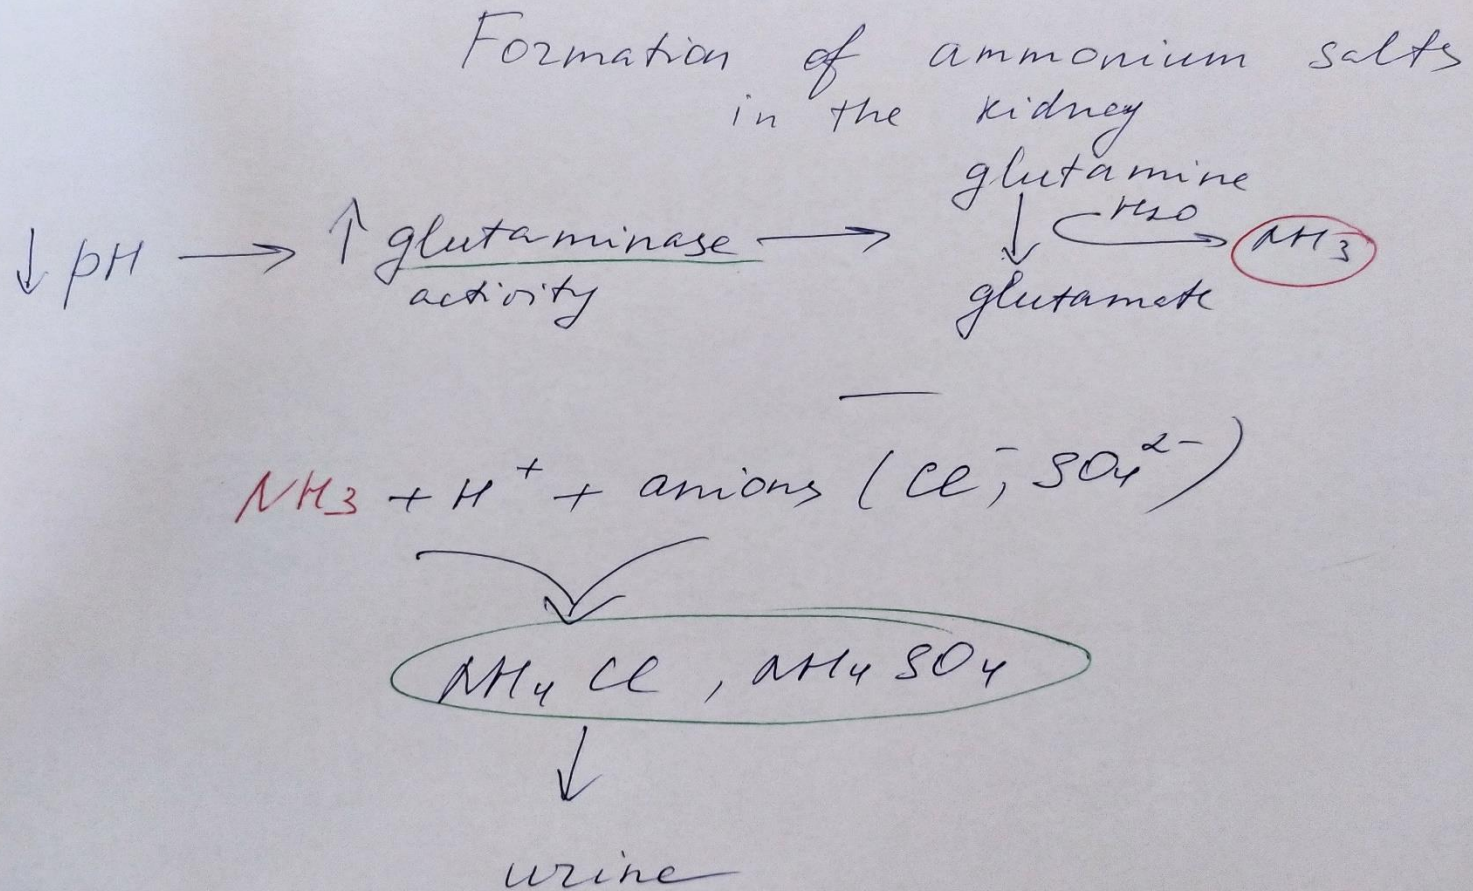 Formation of ammonium salts
in the kidney
glutamine
↓ pH → ↑ glutaminase → ↓ H2O → NH3
activity
glutamate
NH3 + H+ + anions (Cl-, SO4 2-)
NH4 Cl, NH4 SO4
↓
urine